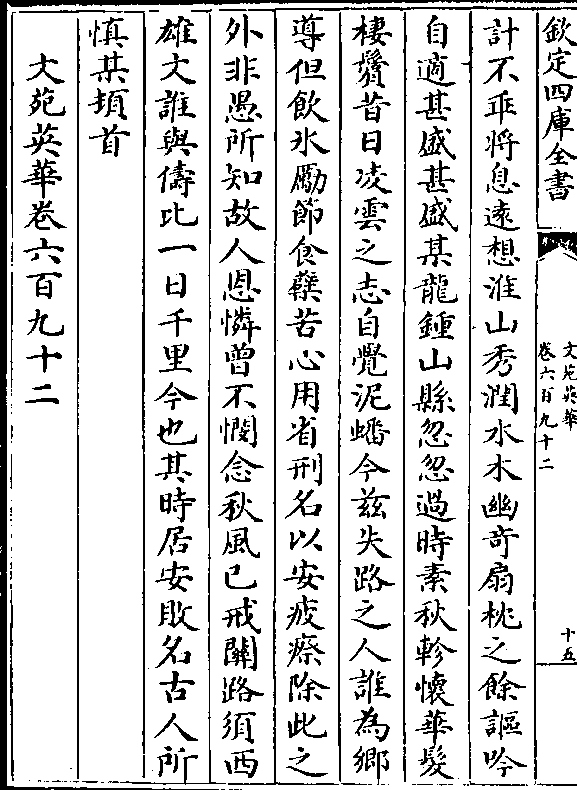 欽定四庫全書
文苑英華
卷六百九十二
十五
計不乖将息遠想淮山秀潤水木幽竒扇枕之餘謳吟
自適甚盛甚盛某龍鍾山縣忽忽過時素秋軫懷華髮
棲鬢昔日凌雲之志自覺泥蟠今兹失路之人誰為鄉
導但飲氷勵節食蘗苦心用省刑名以安疲瘵除此之
外非愚所知故人恩憐曽不憫念秋風已戒關路須西
雄文誰與儔比一日千里今也其時居安敗名古人所
慎某頓首
文苑英華卷六百九十二